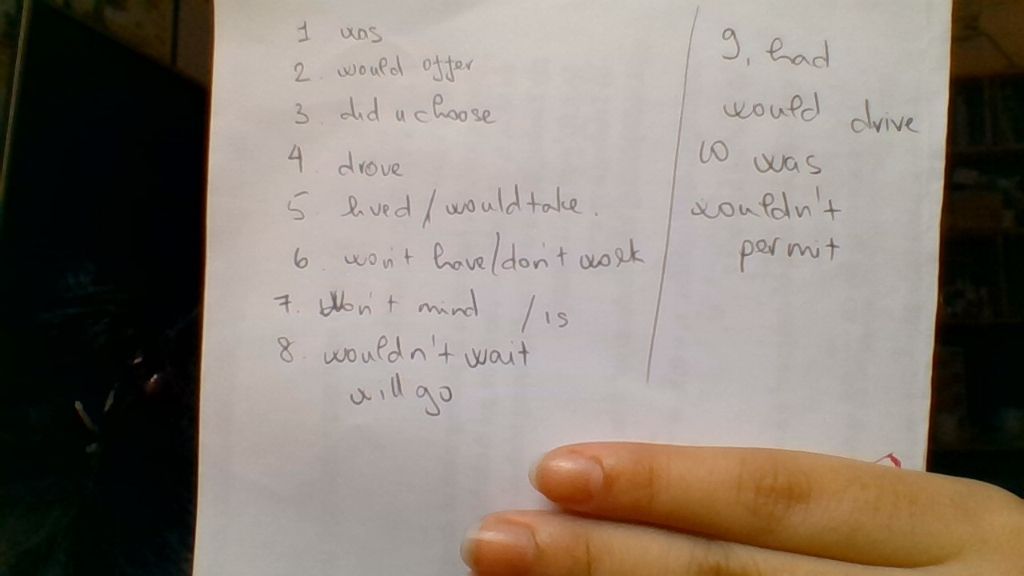 1 was
2. would offer
3. did u choose
4 drove
5 lived / would take.
6. won't have/don't work
7. Won't mind / is
8. wouldn't wait
will go
9. had
would drive
10 was
wouldn't
permit